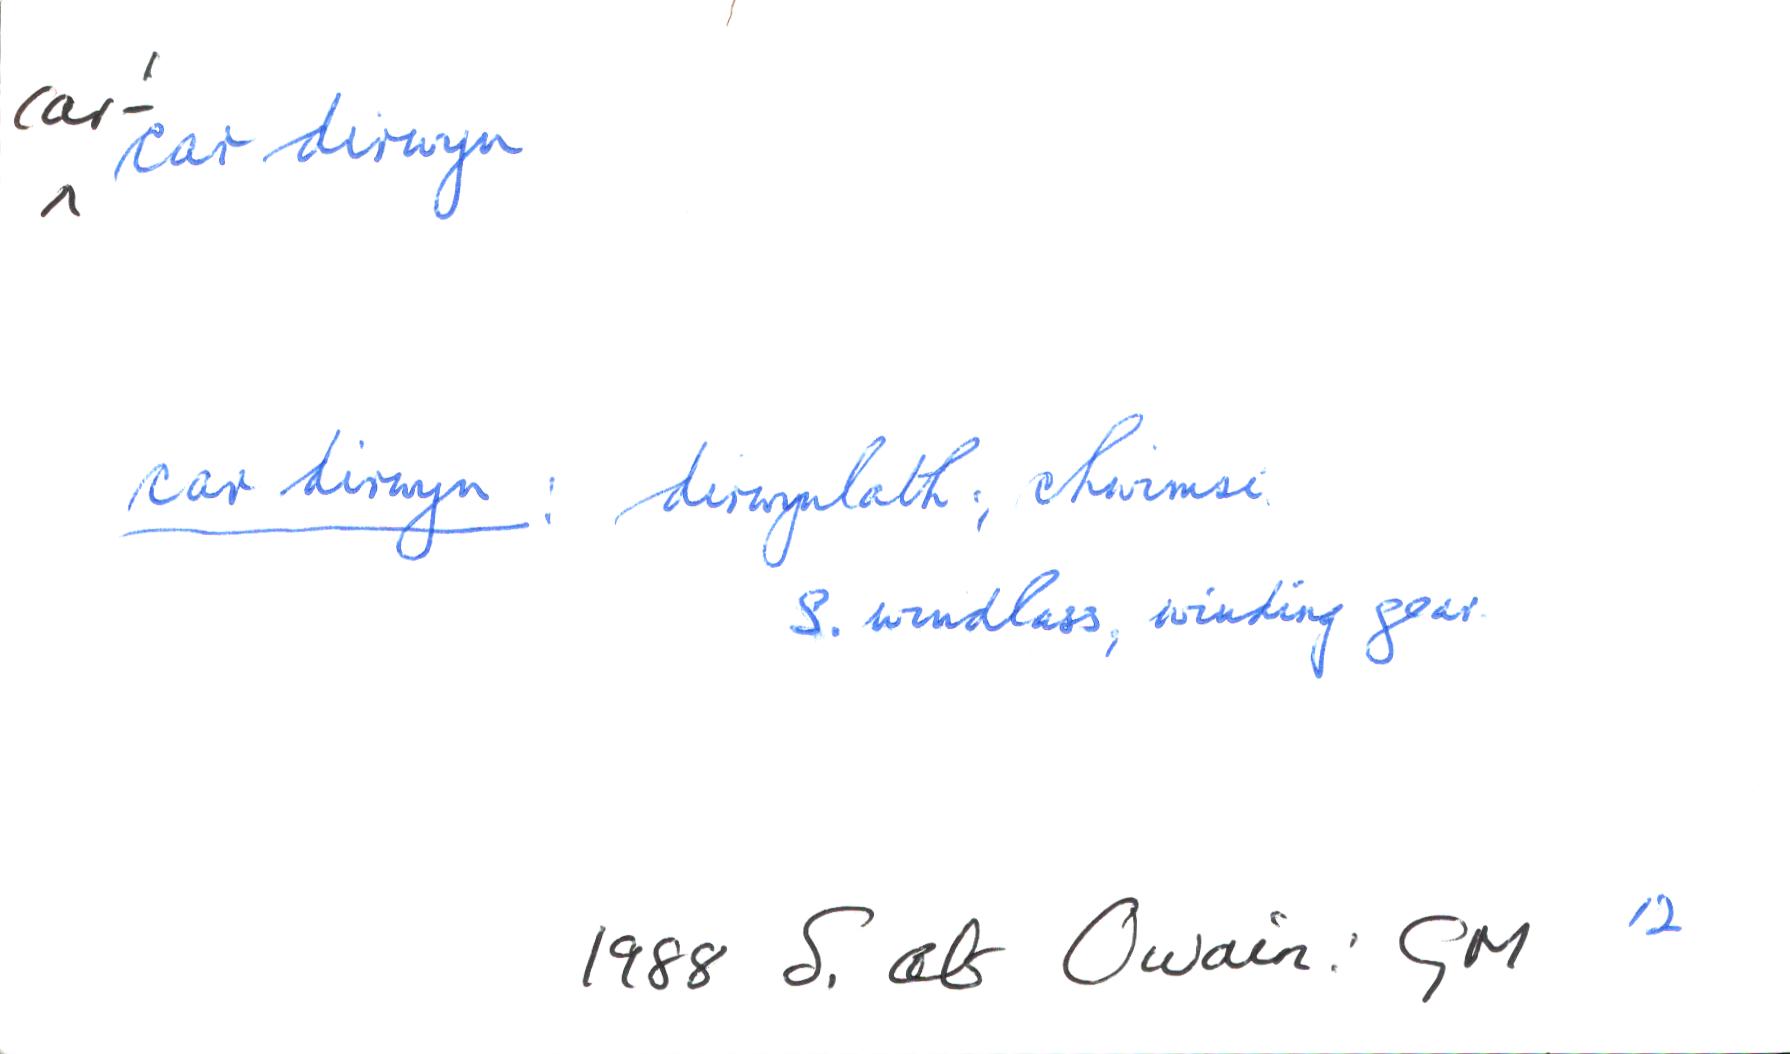 car-¹
car dirwyn
^
car dirwyn : dirwynlath; chwimsi.
S. windlass, winding gear.
1988 S. ab Owain: GM 12